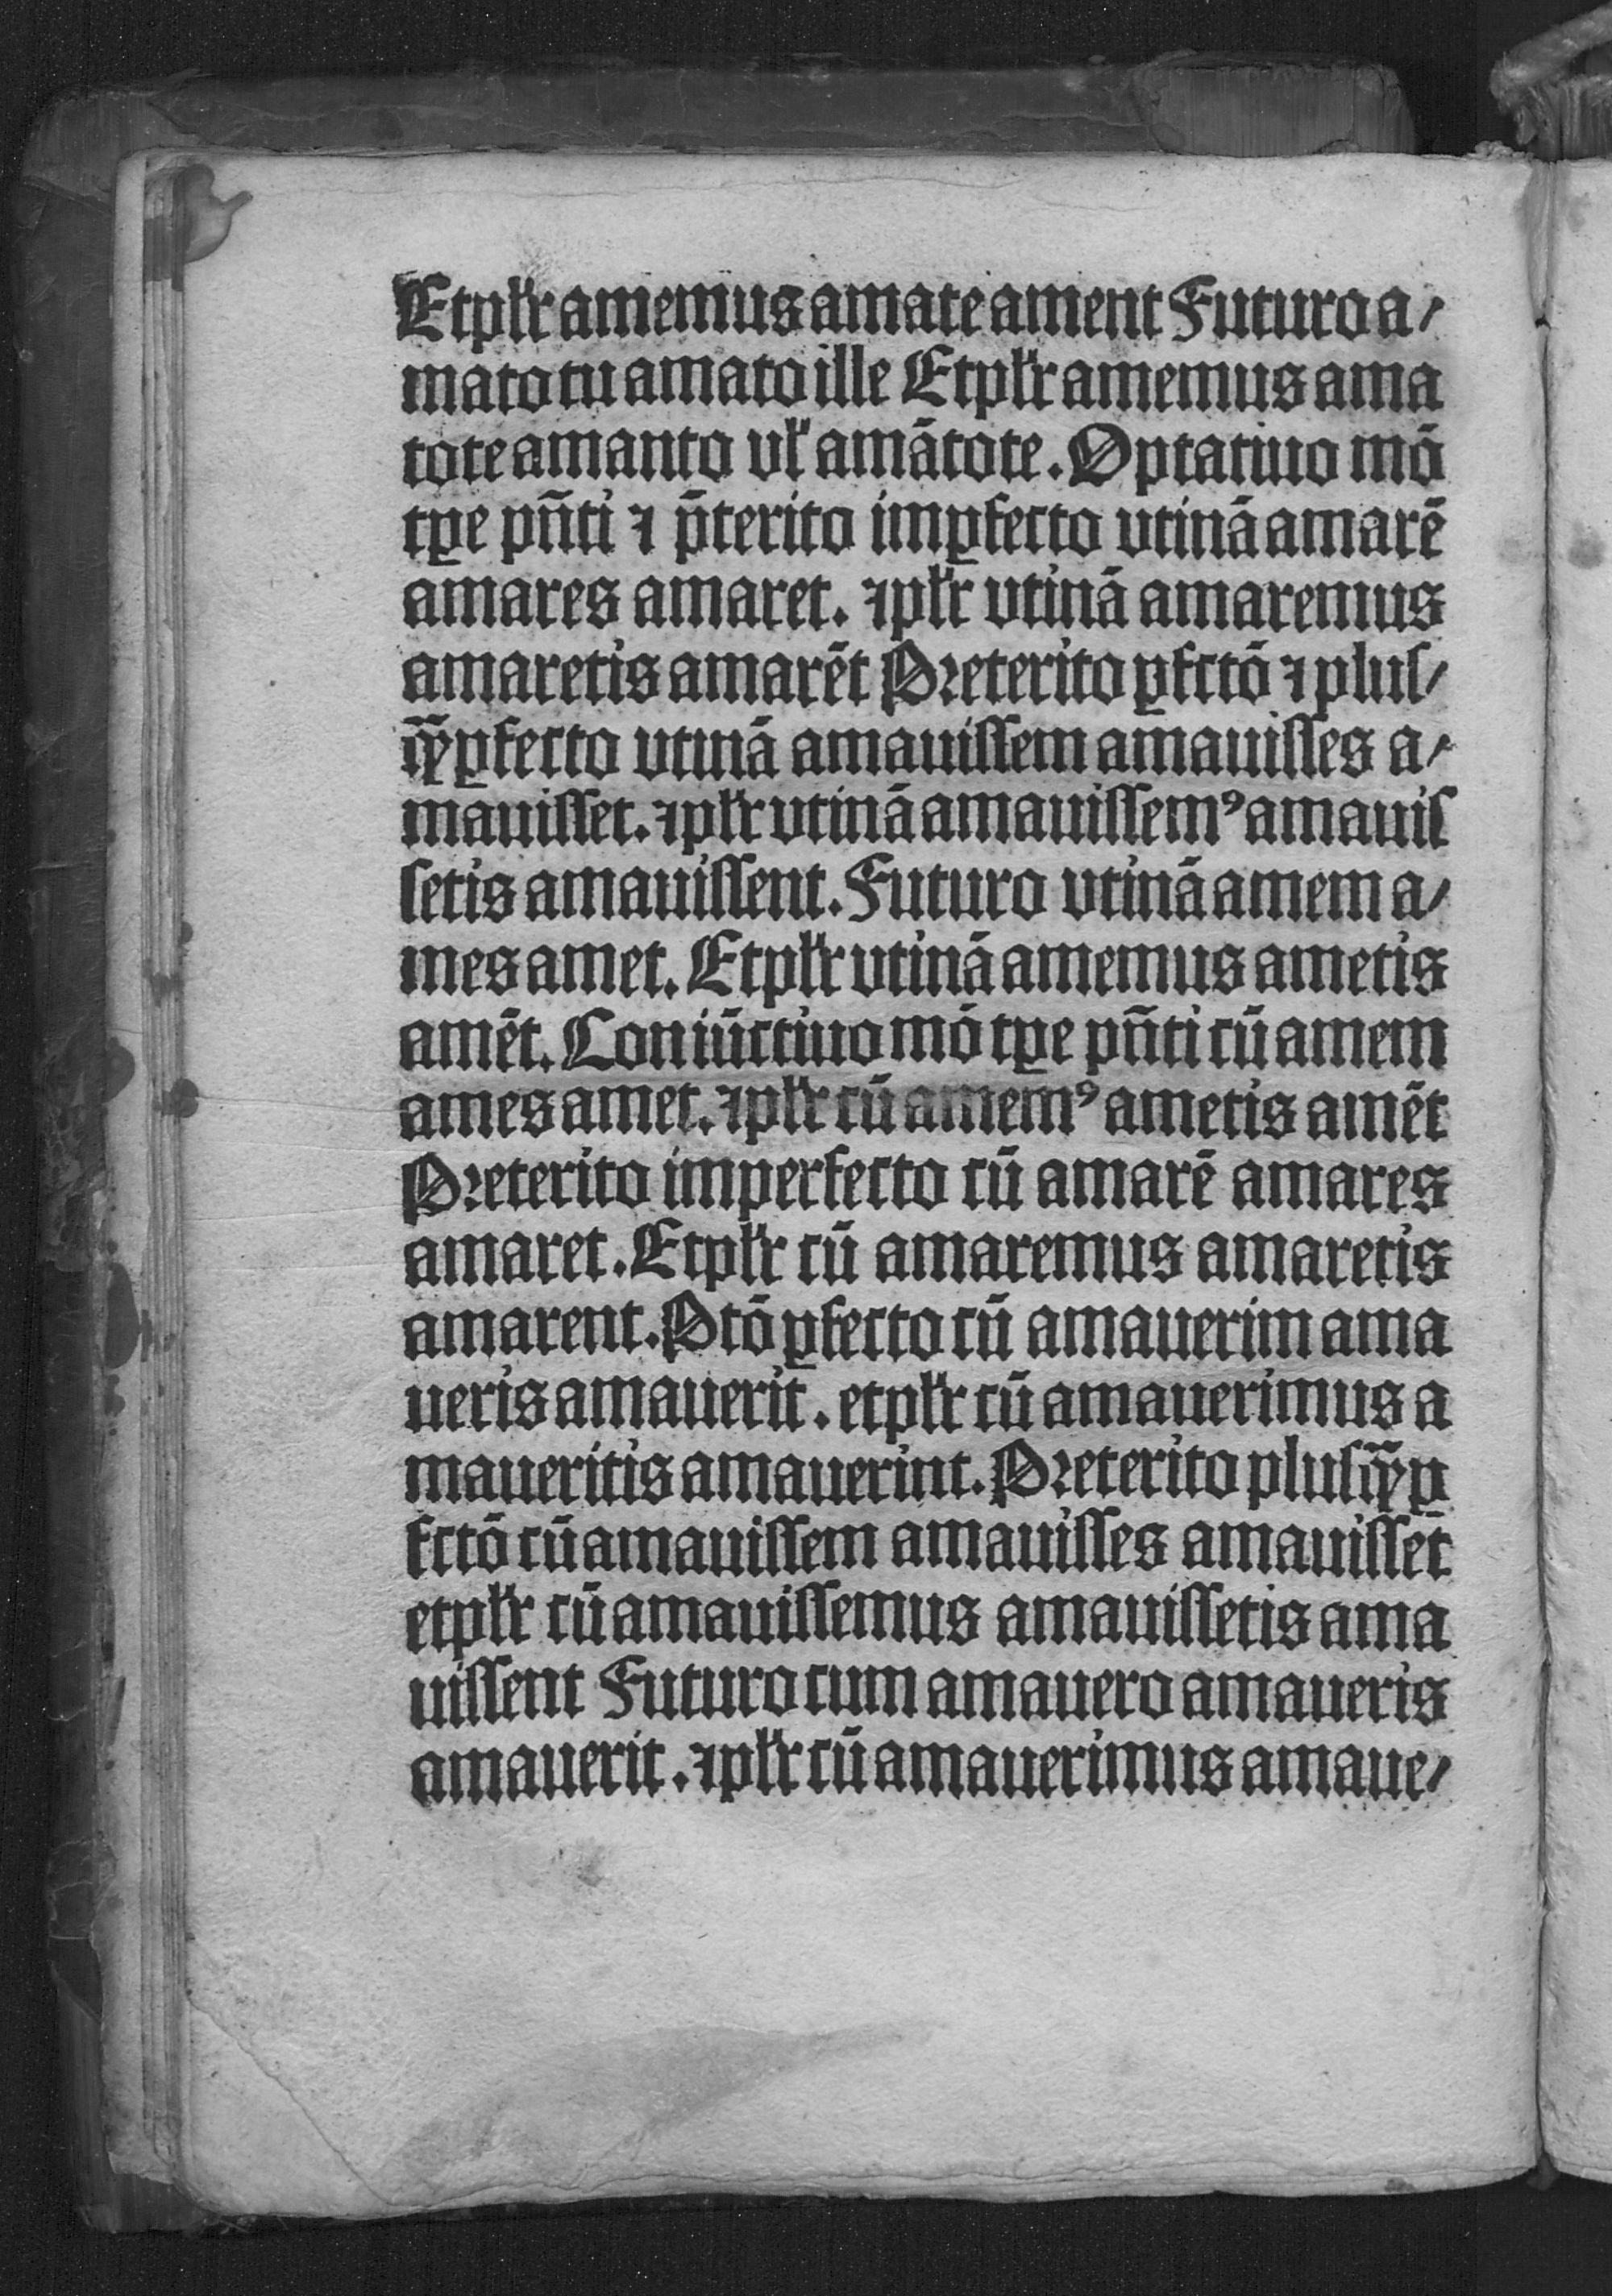 Et pl̄r amemus amate ament Futuro a/
mato tu amato ille Et pl̄r amemus ama
tote amanto vl̄ amātote. Optatiuo mō
tꝑe pn̄ti ⁊ p̄terito imꝑfecto vtinā amarē
amares amaret. ⁊ pl̄r vtinā amaremus
amaretis amarēt Preterito ꝑfctō ⁊ pluſ/
ꝙ̄ꝑfecto vtinā amauiſſem amauiſſes a/
mauiſſet. ⁊ pl̄r vtinā amauiſſemꝰ amauiſ
ſetis amauiſſent. Futuro vtinā amem a/
mes amet. Et pl̄r vtinā amemus ametis
amēt. Coniūctiuo mō tꝑe pn̄ti cū amem
ames amet. ⁊ pl̄r cū amemꝰ ametis amēt
Preterito imperfecto cū amarē amares
amaret. Et pl̄r cū amaremus amaretis
amarent. Ptō ꝑfecto cū amauerim ama
ueris amauerit. et pl̄r cū amauerimus a
maueritis amauerint. Preterito pluſꝙ̄ꝑ
fctō cū amauiſſem amauiſſes amauiſſet
et pl̄r cū amauiſſemus amauiſſetis ama
uiſſent Futuro cum amauero amaueris
amauerit. ⁊ pl̄r cū amauerimus amaue/